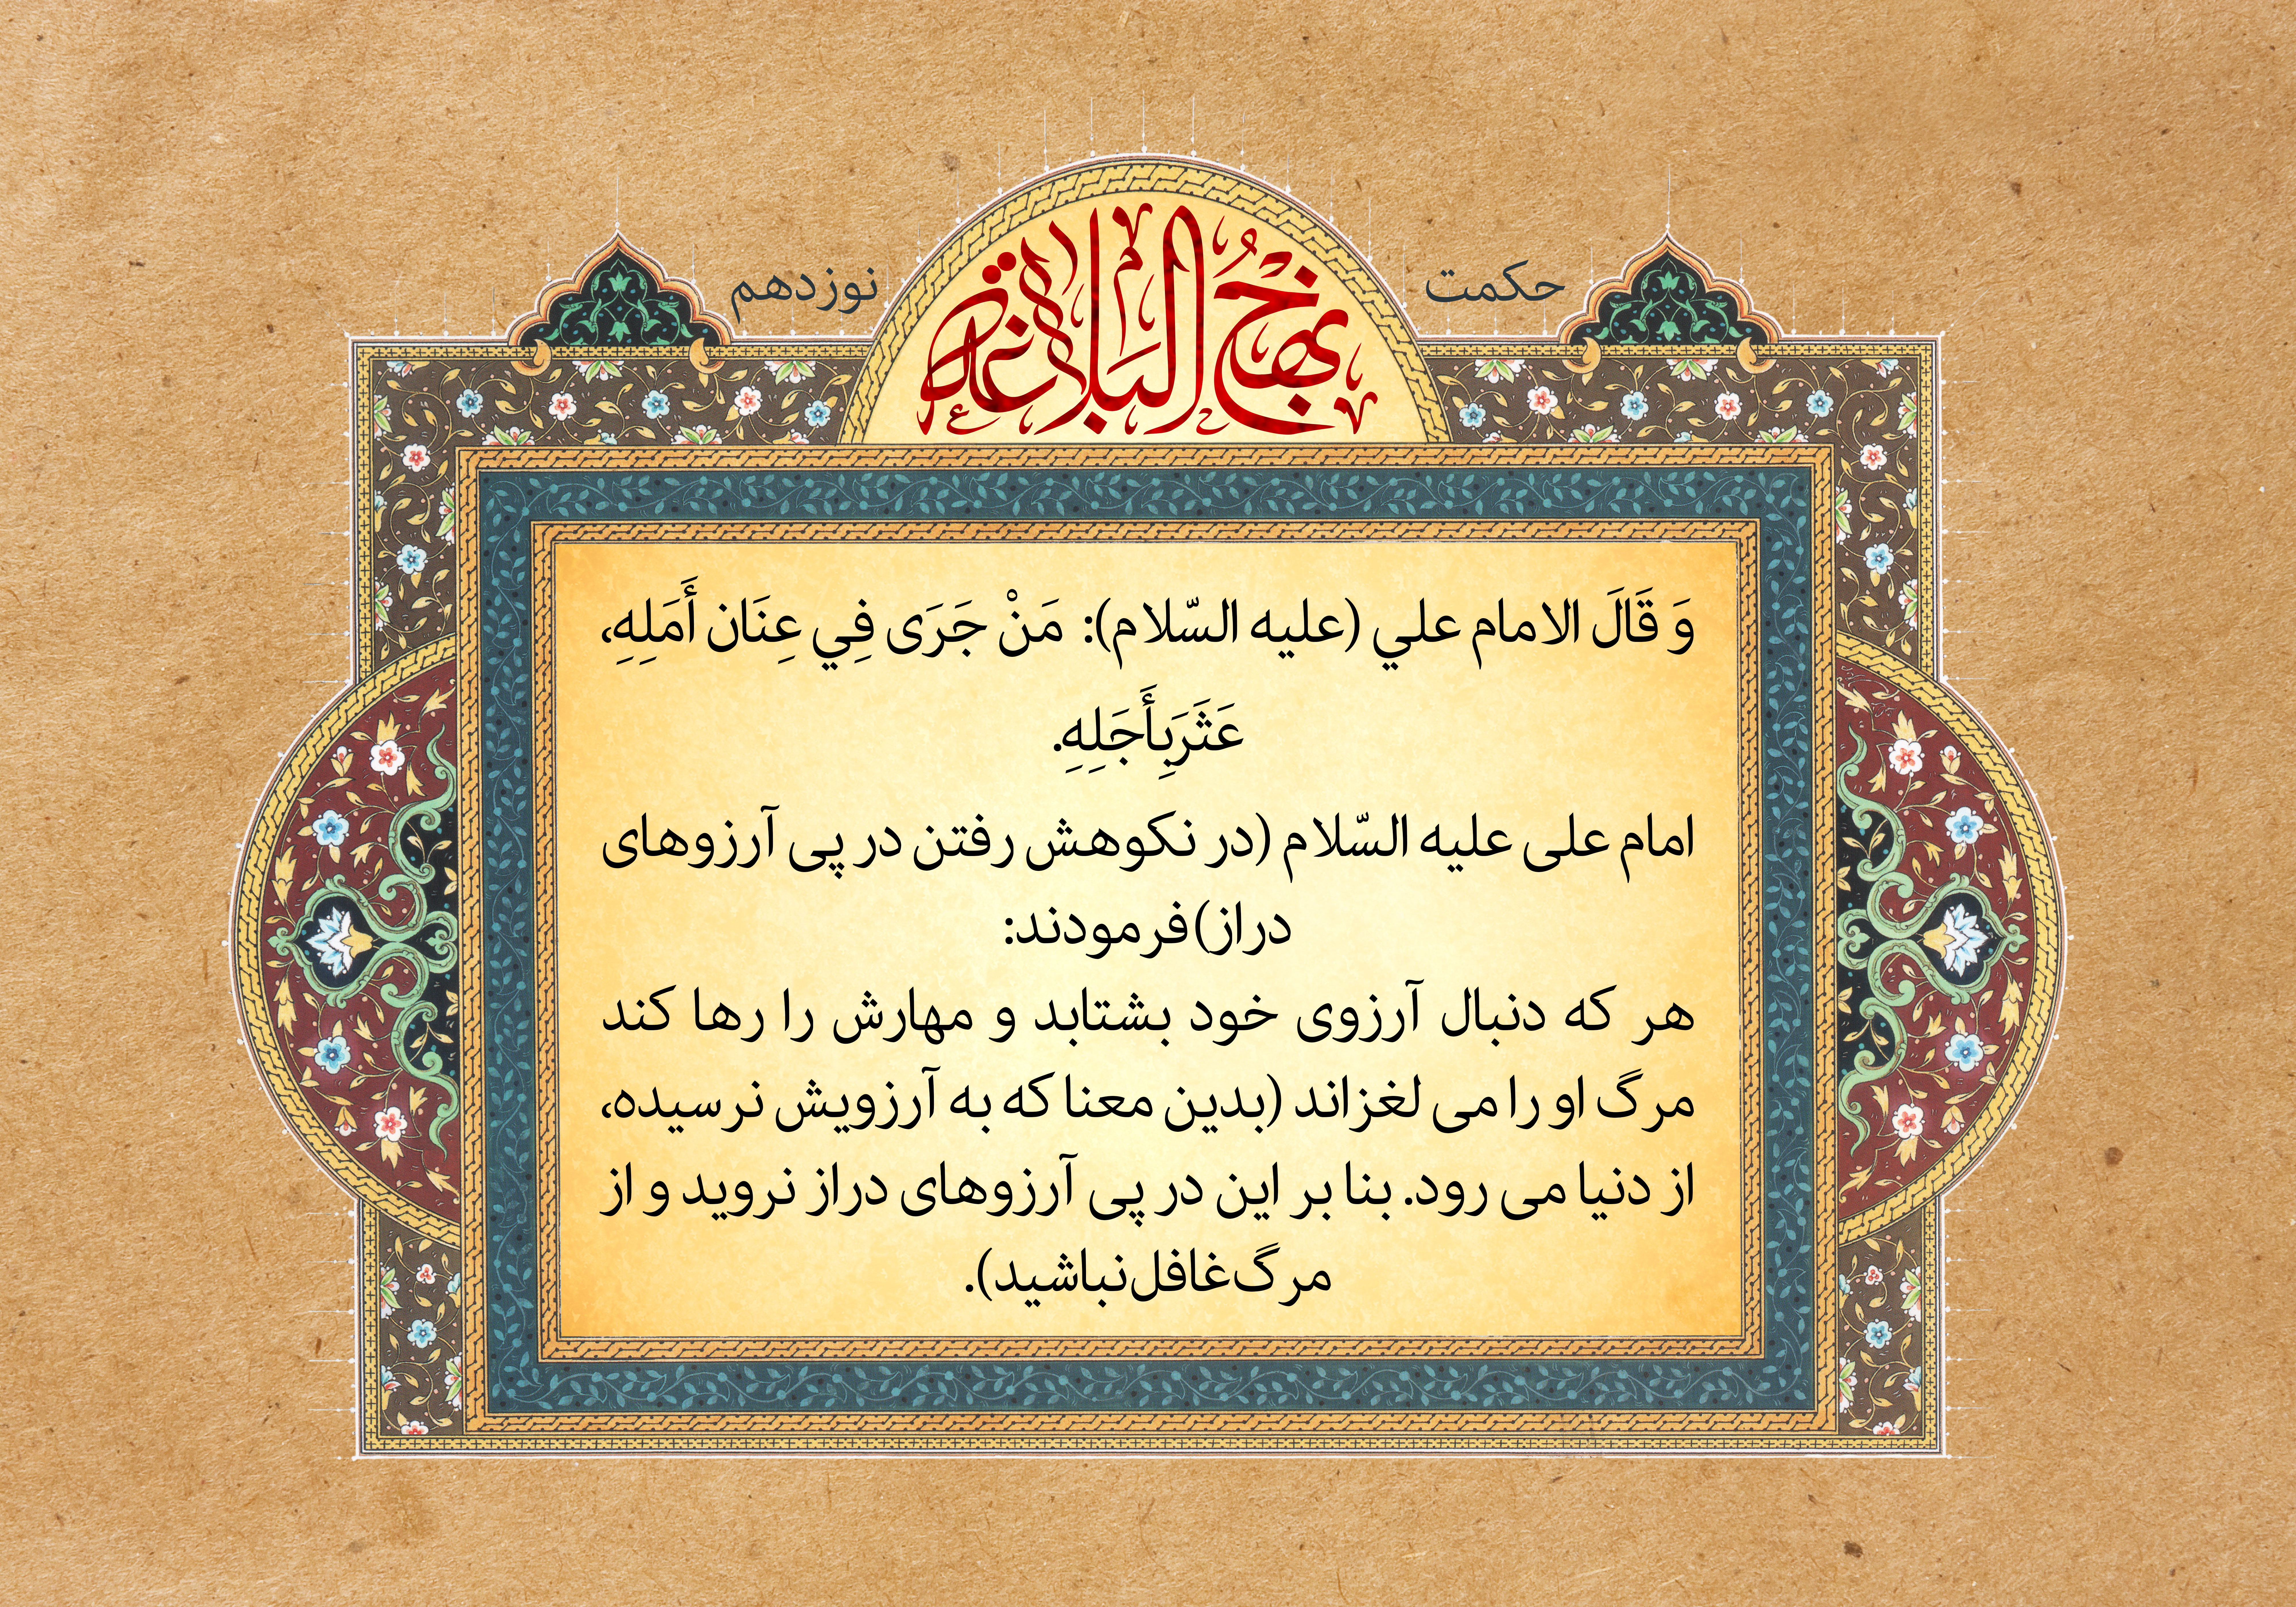 حکمت
نهج البلاغة
نوزدهم
وَ قَالَ الامام علي (عليه السّلام): مَنْ جَرَى فِي عِنَان أَمَلِهِ،
عَثَرَبِأَجَلِهِ.
امام علی علیه السّلام (در نکوهش رفتن در پی آرزوهای
دراز)فرمودند:
هر که دنبال آرزوی خود بشتابد و مهارش را رها کند
مرگ او را می لغزاند (بدین معنا که به آرزویش نرسیده،
از دنیا می رود. بنا بر این در پی آرزوهای دراز نروید و از
مرگ غافل نباشید).